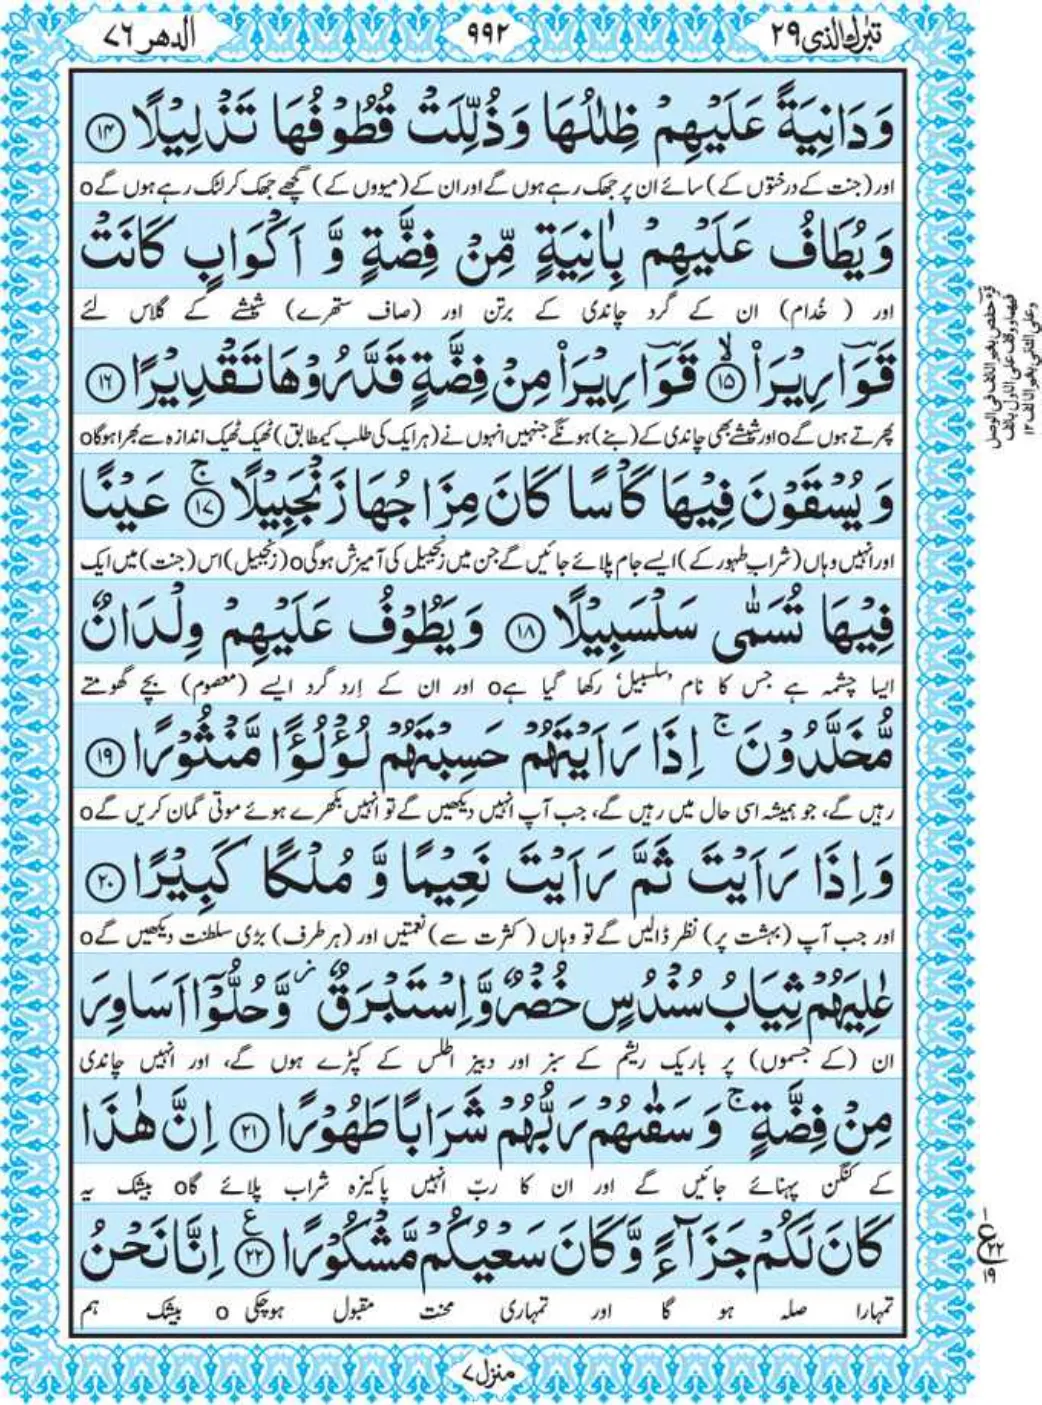 تبٰرك الذی ۲۹
۹۹۲
الدهر ۷۶
وَدَانِيَةً عَلَيْهِمْ ظِلٰلُهَا وَذُلِّلَتْ قُطُوْفُهَا تَذْلِيْلًا ۝۱۴
اور (جنت کے درختوں کے) سائے ان پر جھک رہے ہوں گے اور ان کے (میووں کے) گچھے جھک کر لٹک رہے ہوں گے o
وَيُطَافُ عَلَيْهِمْ بِاٰنِيَةٍ مِّنْ فِضَّةٍ وَّ اَكْوَابٍ كَانَتْ
اور (خُدام) ان کے گرد چاندی کے برتن اور (صاف ستھرے) شیشے کے گلاس لئے
قَوَارِيْرَا۠ ۝۱۵ۙ قَوَارِيْرَا۠ مِنْ فِضَّةٍ قَدَّرُوْهَا تَقْدِيْرًا ۝۱۶
پھرتے ہوں گے o اور شیشے بھی چاندی کے (بنے) ہونگے جنہیں انہوں نے (ہر ایک کی طلب کیمطابق) ٹھیک ٹھیک اندازہ سے بھرا ہوگا o
وَيُسْقَوْنَ فِيْهَا كَاْسًا كَانَ مِزَاجُهَا زَنْجَبِيْلًا ۝۱۷ۚ عَيْنًا
اور انہیں وہاں (شراب طہور کے) ایسے جام پلائے جائیں گے جن میں زنجبیل کی آمیزش ہوگی o (زنجبیل) اس (جنت) میں ایک
فِيْهَا تُسَمّٰى سَلْسَبِيْلًا ۝۱۸ وَيَطُوْفُ عَلَيْهِمْ وِلْدَانٌ
ایسا چشمہ ہے جس کا نام ’سلسبیل‘ رکھا گیا ہے o اور ان کے اِرد گرد ایسے (معصوم) بچے گھومتے
مُّخَلَّدُوْنَ ۚ اِذَا رَاَيْتَهُمْ حَسِبْتَهُمْ لُؤْلُؤًا مَّنْثُوْرًا ۝۱۹
رہیں گے، جو ہمیشہ اسی حال میں رہیں گے، جب آپ انہیں دیکھیں گے تو انہیں بکھرے ہوئے موتی گمان کریں گے o
وَاِذَا رَاَيْتَ ثَمَّ رَاَيْتَ نَعِيْمًا وَّ مُلْكًا كَبِيْرًا ۝۲۰
اور جب آپ (بہشت پر) نظر ڈالیں گے تو وہاں (کثرت سے) نعمتیں اور (ہر طرف) بڑی سلطنت دیکھیں گے o
عٰلِيَهُمْ ثِيَابُ سُنْدُسٍ خُضْرٌ وَّاِسْتَبْرَقٌ ز وَّحُلُّوْۤا اَسَاوِرَ
ان (کے جسموں) پر باریک ریشم کے سبز اور دبیز اطلس کے کپڑے ہوں گے، اور انہیں چاندی
مِنْ فِضَّةٍ ۚ وَسَقٰىهُمْ رَبُّهُمْ شَرَابًا طَهُوْرًا ۝۲۱ اِنَّ هٰذَا
کے کنگن پہنائے جائیں گے اور ان کا ربّ انہیں پاکیزہ شراب پلائے گا o بیشک یہ
كَانَ لَكُمْ جَزَآءً وَّكَانَ سَعْيُكُمْ مَّشْكُوْرًا ۝۲۲ ع اِنَّا نَحْنُ
تمہارا صلہ ہو گا اور تمہاری محنت مقبول ہوچکی o بیشک ہم
۱
ع ۲۲
۱۹
منزل ۷